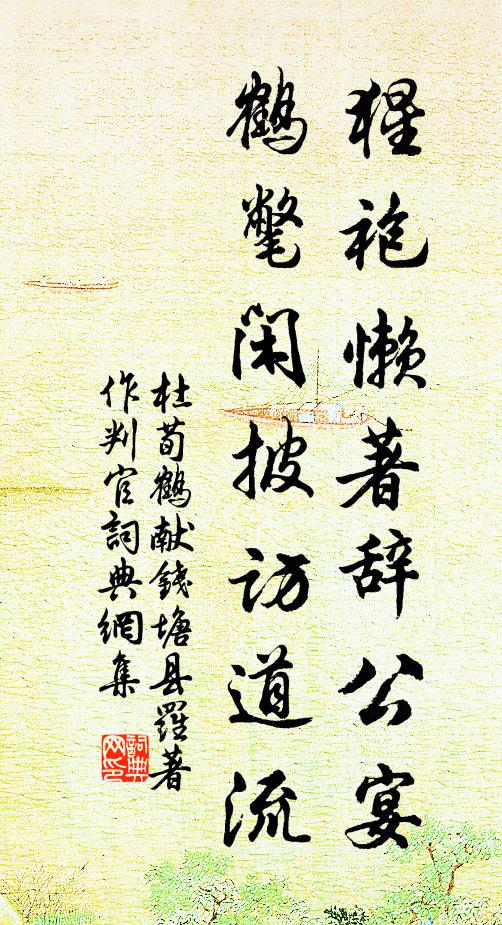 猩袍懒著辞公宴
鹤氅闲披访道流
杜荀鹤献錢塘县羅著
作判官詞典網集
詞典
网印